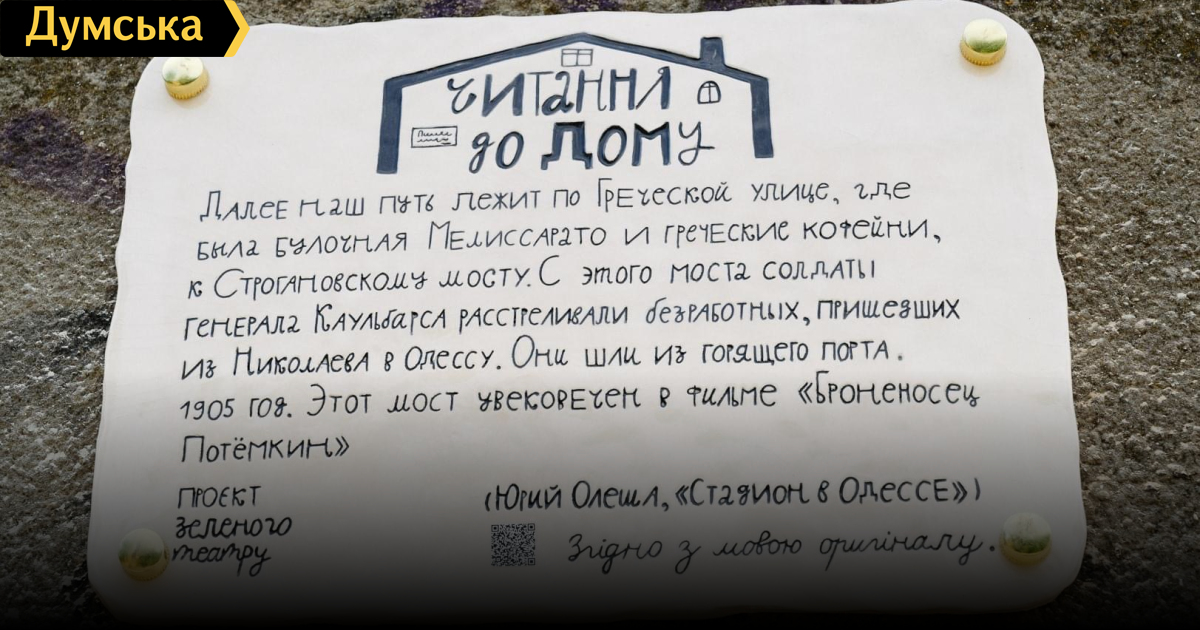 Думська
читання
до дому
Далее наш путь лежит по Греческой улице, где
была булочная Мелиссарато и греческие кофейни,
к Строгановскому мосту. С этого моста солдаты
генерала Каульбарса расстреливали безработных, пришедших
из Николаева в Одессу. Они шли из горящего порта.
1905 год. Этот мост увековечен в фильме «Броненосец
Потёмкин»
(Юрий Олеша, «Стадион в Одессе»)
проєкт
зеленого
театру
Згідно з мовою оригіналу.